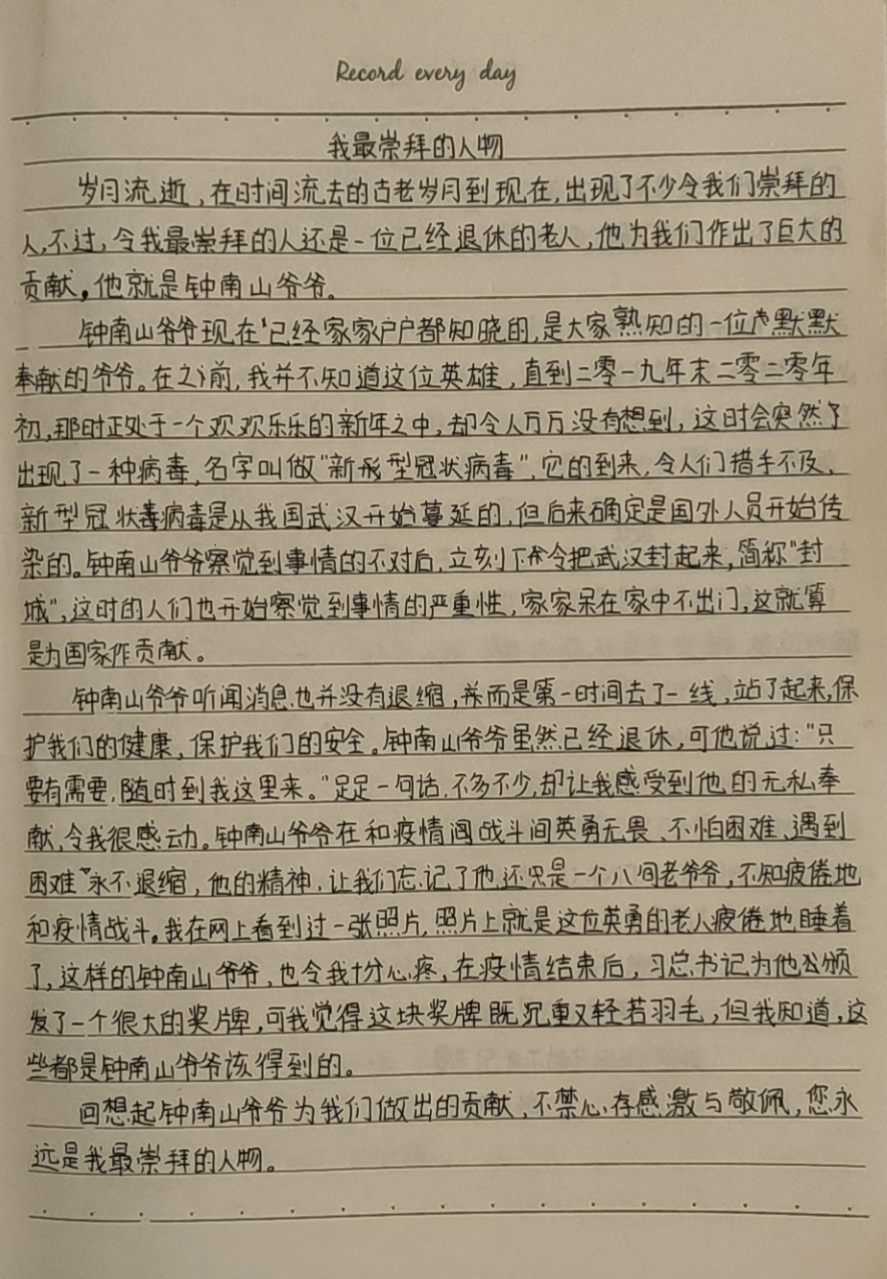 Record every day
我最崇拜的人物
岁月流逝,在时间流去的古老岁月到现在,出现了不少令我们崇拜的
人,不过,令我最崇拜的人还是一位已经退休的老人,他为我们作出了巨大的
贡献,他就是钟南山爷爷。
钟南山爷爷现在已经家家户户都知晓的,是大家熟知的一位默默
奉献的爷爷。在之前,我并不知道这位英雄,直到二零一九年末二零二零年
初,那时正处于一个欢欢乐乐的新年之中,却令人万万没有想到,这时会突然了
出现了一种病毒,名字叫做"新形型冠状病毒",它的到来,令人们措手不及,
新型冠状毒病毒是从我国武汉开始蔓延的,但后来确定是国外人员开始传
染的。钟南山爷爷察觉到事情的不对后,立刻下令把武汉封起来,简称"封
城",这时的人们也开始察觉到事情的严重性,家家呆在家中不出门,这就算
是为国家作贡献。
钟南山爷爷听闻消息也并没有退缩,而是第一时间去了一线,站了起来,保
护我们的健康,保护我们的安全。钟南山爷爷虽然已经退休,可他说过:"只
要有需要,随时到我这里来。"足足一句话,不多不少,却让我感受到他的无私奉
献,令我很感动。钟南山爷爷在和疫情战斗间英勇无畏、不怕困难、遇到
困难永不退缩,他的精神,让我们忘记了他还只是一个八旬老爷爷,不知疲倦地
和疫情战斗。我在网上看到过一张照片,照片上就是这位英勇的老人疲倦地睡着
了,这样的钟南山爷爷,也令我十分心疼,在疫情结束后,习总书记为他颁
发了一个很大的奖牌,可我觉得这块奖牌既沉重又轻若羽毛,但我知道,这
些都是钟南山爷爷该得到的。
回想起钟南山爷爷为我们做出的贡献,不禁心存感激与敬佩,您永
远是我最崇拜的人物。